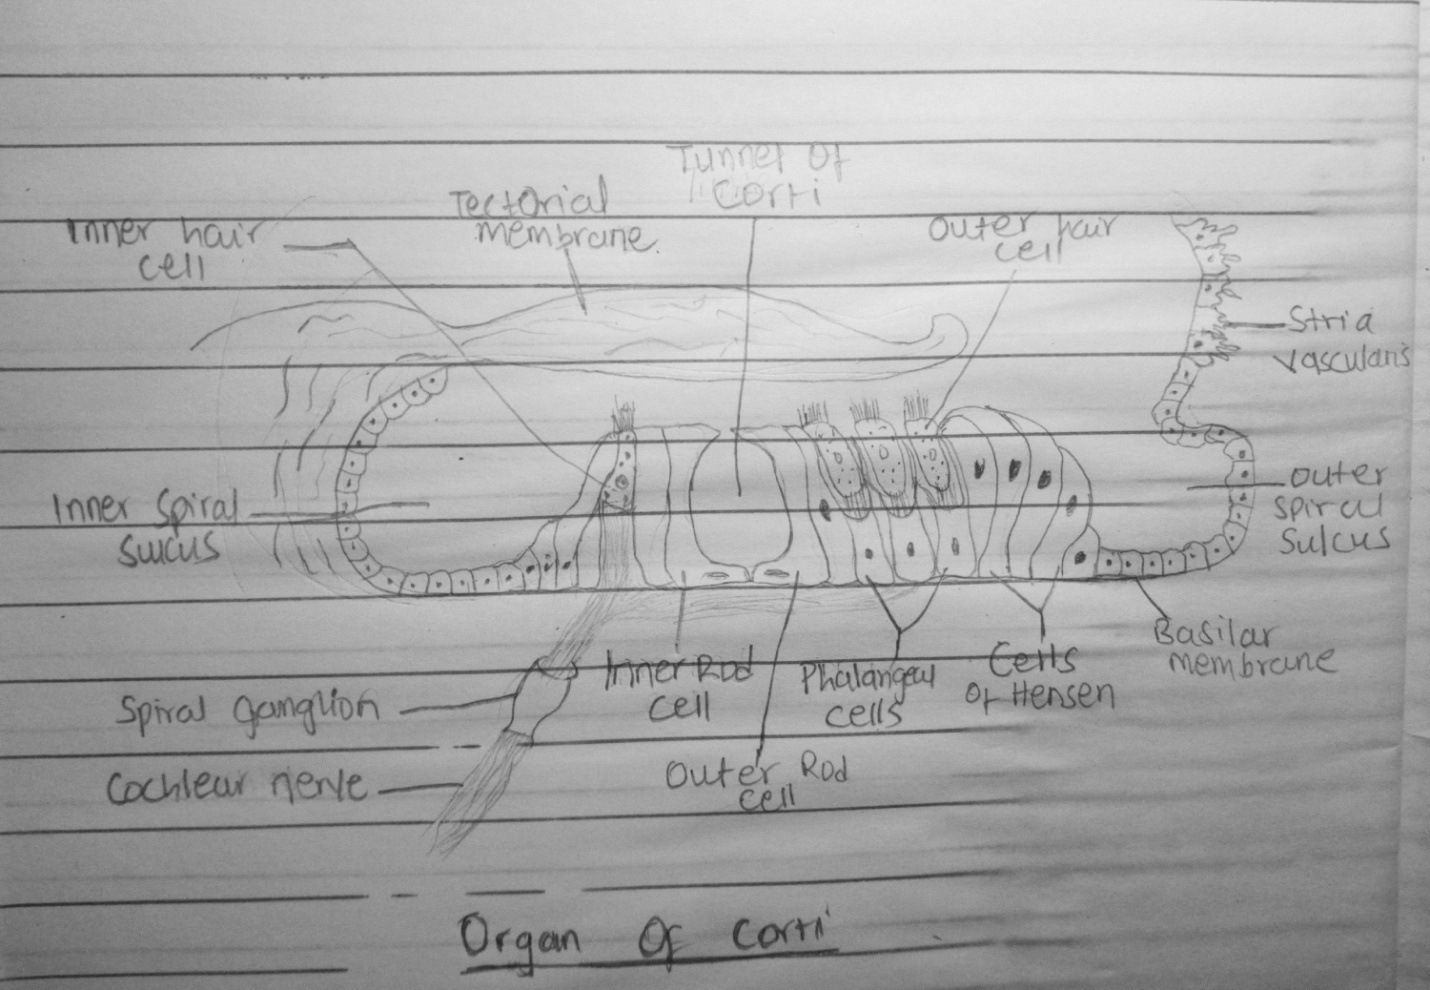 Tunnel Of
Corti
Tectorial
membrane
Inner hair
cell
Outer hair
cell
Stria
vascularis
Inner Spiral
Sulcus
outer
spiral
Sulcus
Basilar
membrane
Inner Rod
cell
Phalangeal
cells
Cells
Of Hensen
Spiral Ganglion
Outer Rod
cell
Cochlear nerve
Organ Of Corti